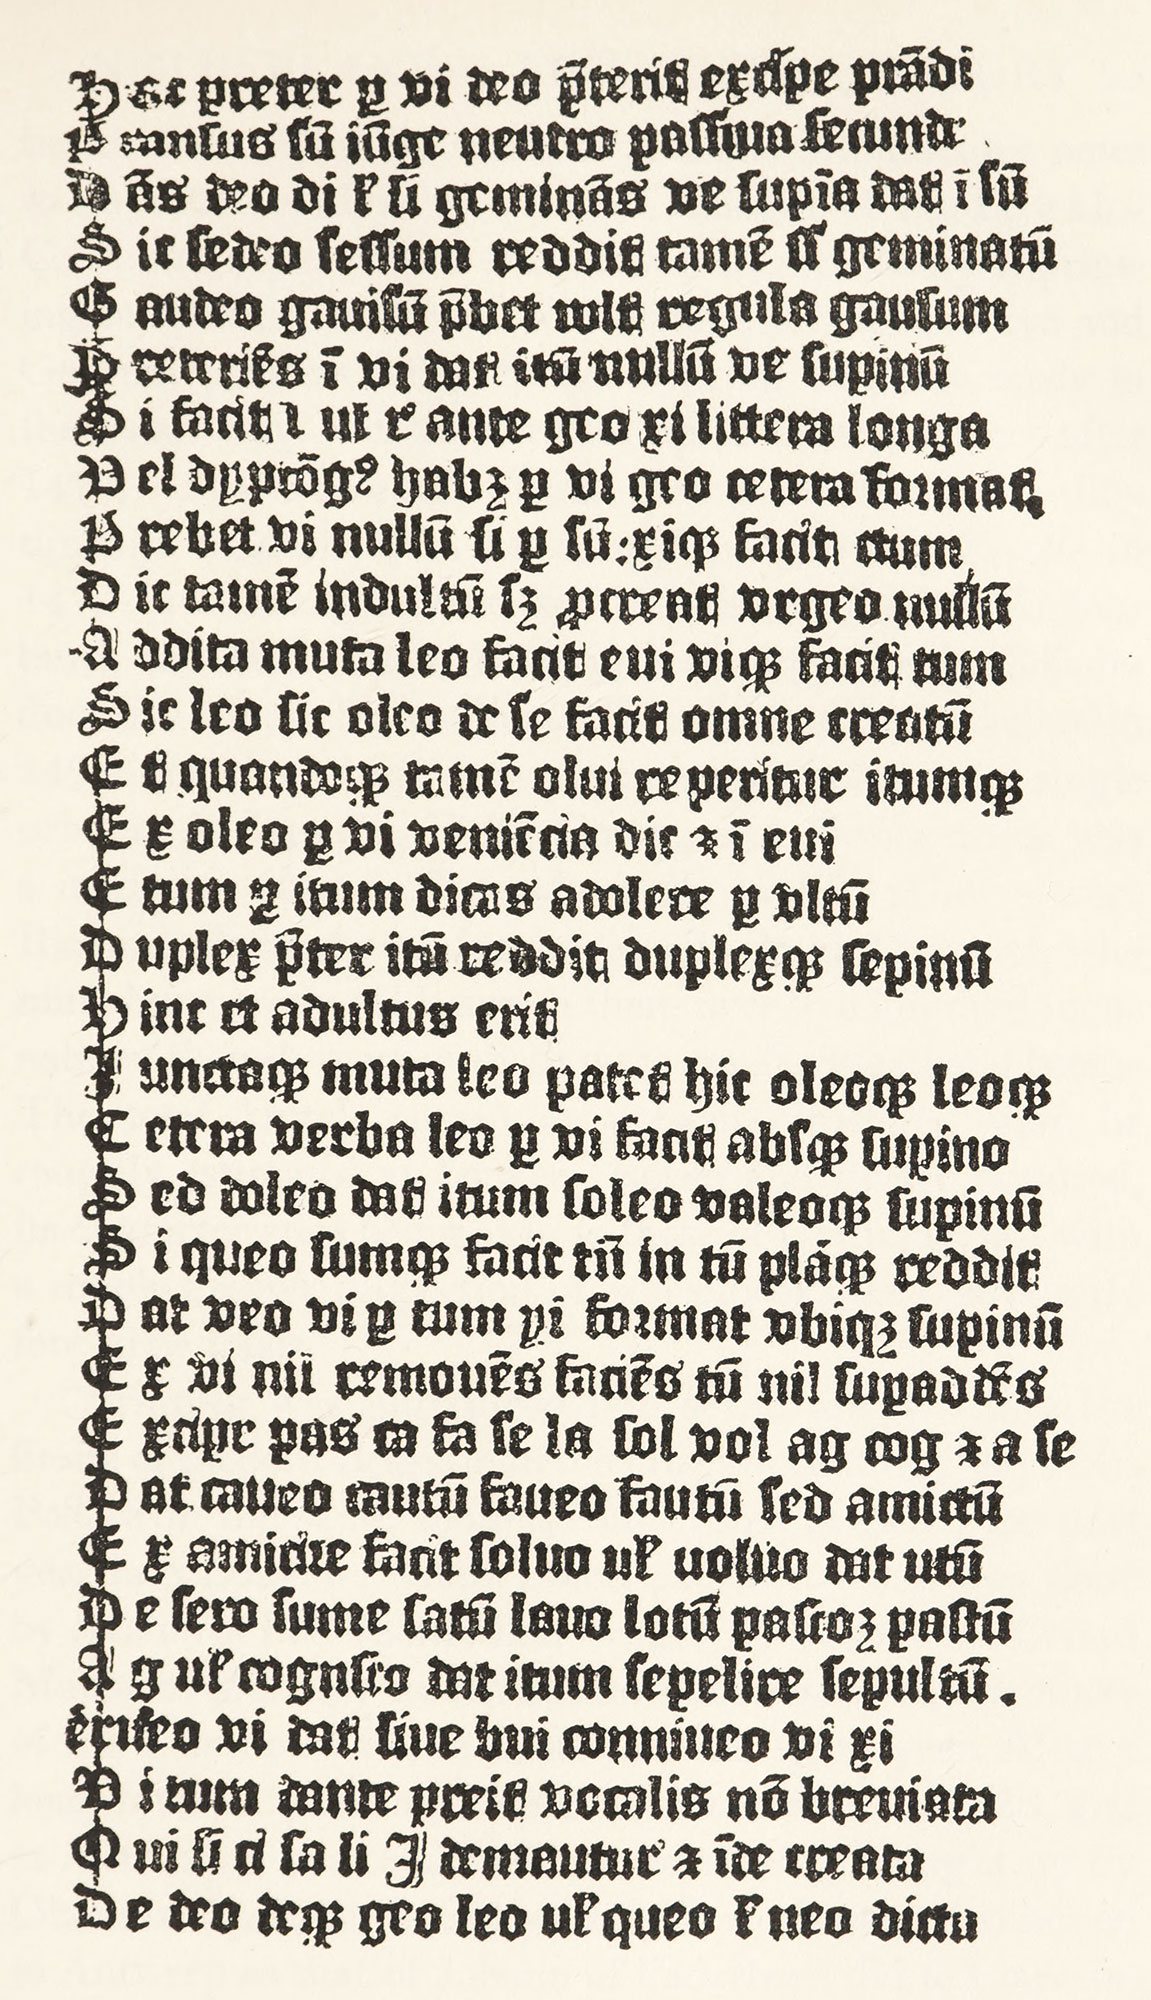 H ec preter p vi deo p̄terit excipe prādi
P ransus sū iūge neutro passiua secunde
D ās deo di ł si geminās ve supīa dat ī sū
S ic sedeo sessum reddit tamē ss geminatū
G audeo gauisū p̄bet vult regula gausum
P reteriēs ī vi dat itū nullū ve supinū
S i facit l ul r ante geo xi littera longa
V el dyptōgꝰ habꝫ p vi geo cetera format
P rebet vi nullū si p sū: xiqꝫ facit ctum
D ic tamē indultū sꝫ ꝓcreat vrgeo nullū
A ddita muta leo facit eui viqꝫ facit tum
S ic leo sic oleo de se facit omne creatū
E t quandoqꝫ tamē olui reperitur itumqꝫ
E x oleo p vi veniēcia dic ⁊ ī eui
E tum p itum dicas adolere p vltū
D uplex p̄ter itū reddit duplexqꝫ sepinū
H inc et adultus erit
J unctaqꝫ muta leo patet hic oleoqꝫ leoqꝫ
C etera verba leo p vi facit absqꝫ supino
S ed doleo dat itum soleo valeoqꝫ supinū
S i queo sumqꝫ facit tū in tū plāqꝫ reddit
D at veo vi p tum pi format vbiqꝫ supinū
E x vi nil remouēs faciēs tū nil supaddēs
E xcipe pas ca fa se la sol vol ag cog ⁊ a se
D at caueo cautū faueo fautū sed amictū
E x amicire facit soluo uł uoluo dat utū
D e sero sume satū lauo lotū pascoꝫ pastū
A g uł cognsco dat itum sepelire sepultū.
ēriseo vi dat siue bui conniueo vi xi
V i tum dante preit vocalis nō breuiata
Q ui si ci sa li J demantur ⁊ īde creata
D e deo deqꝫ geo leo uł queo ł neo dicta